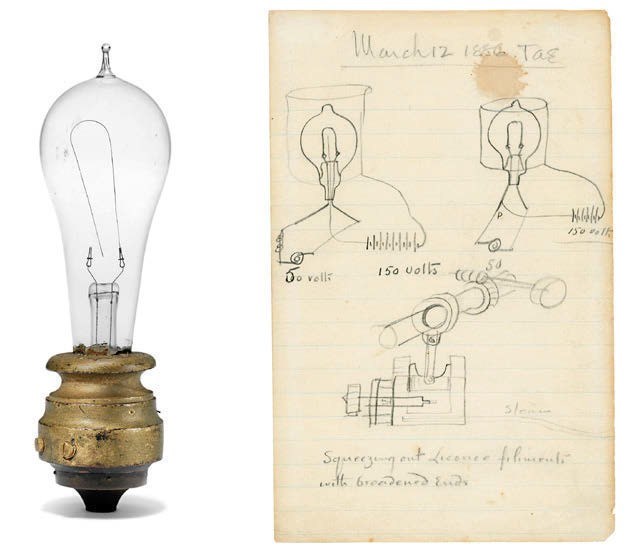 March 12 1886 TAE
P
150 volts
50 volts
150 volts
50
Steam
Squeezing out Licorice filiments
with broadened Ends